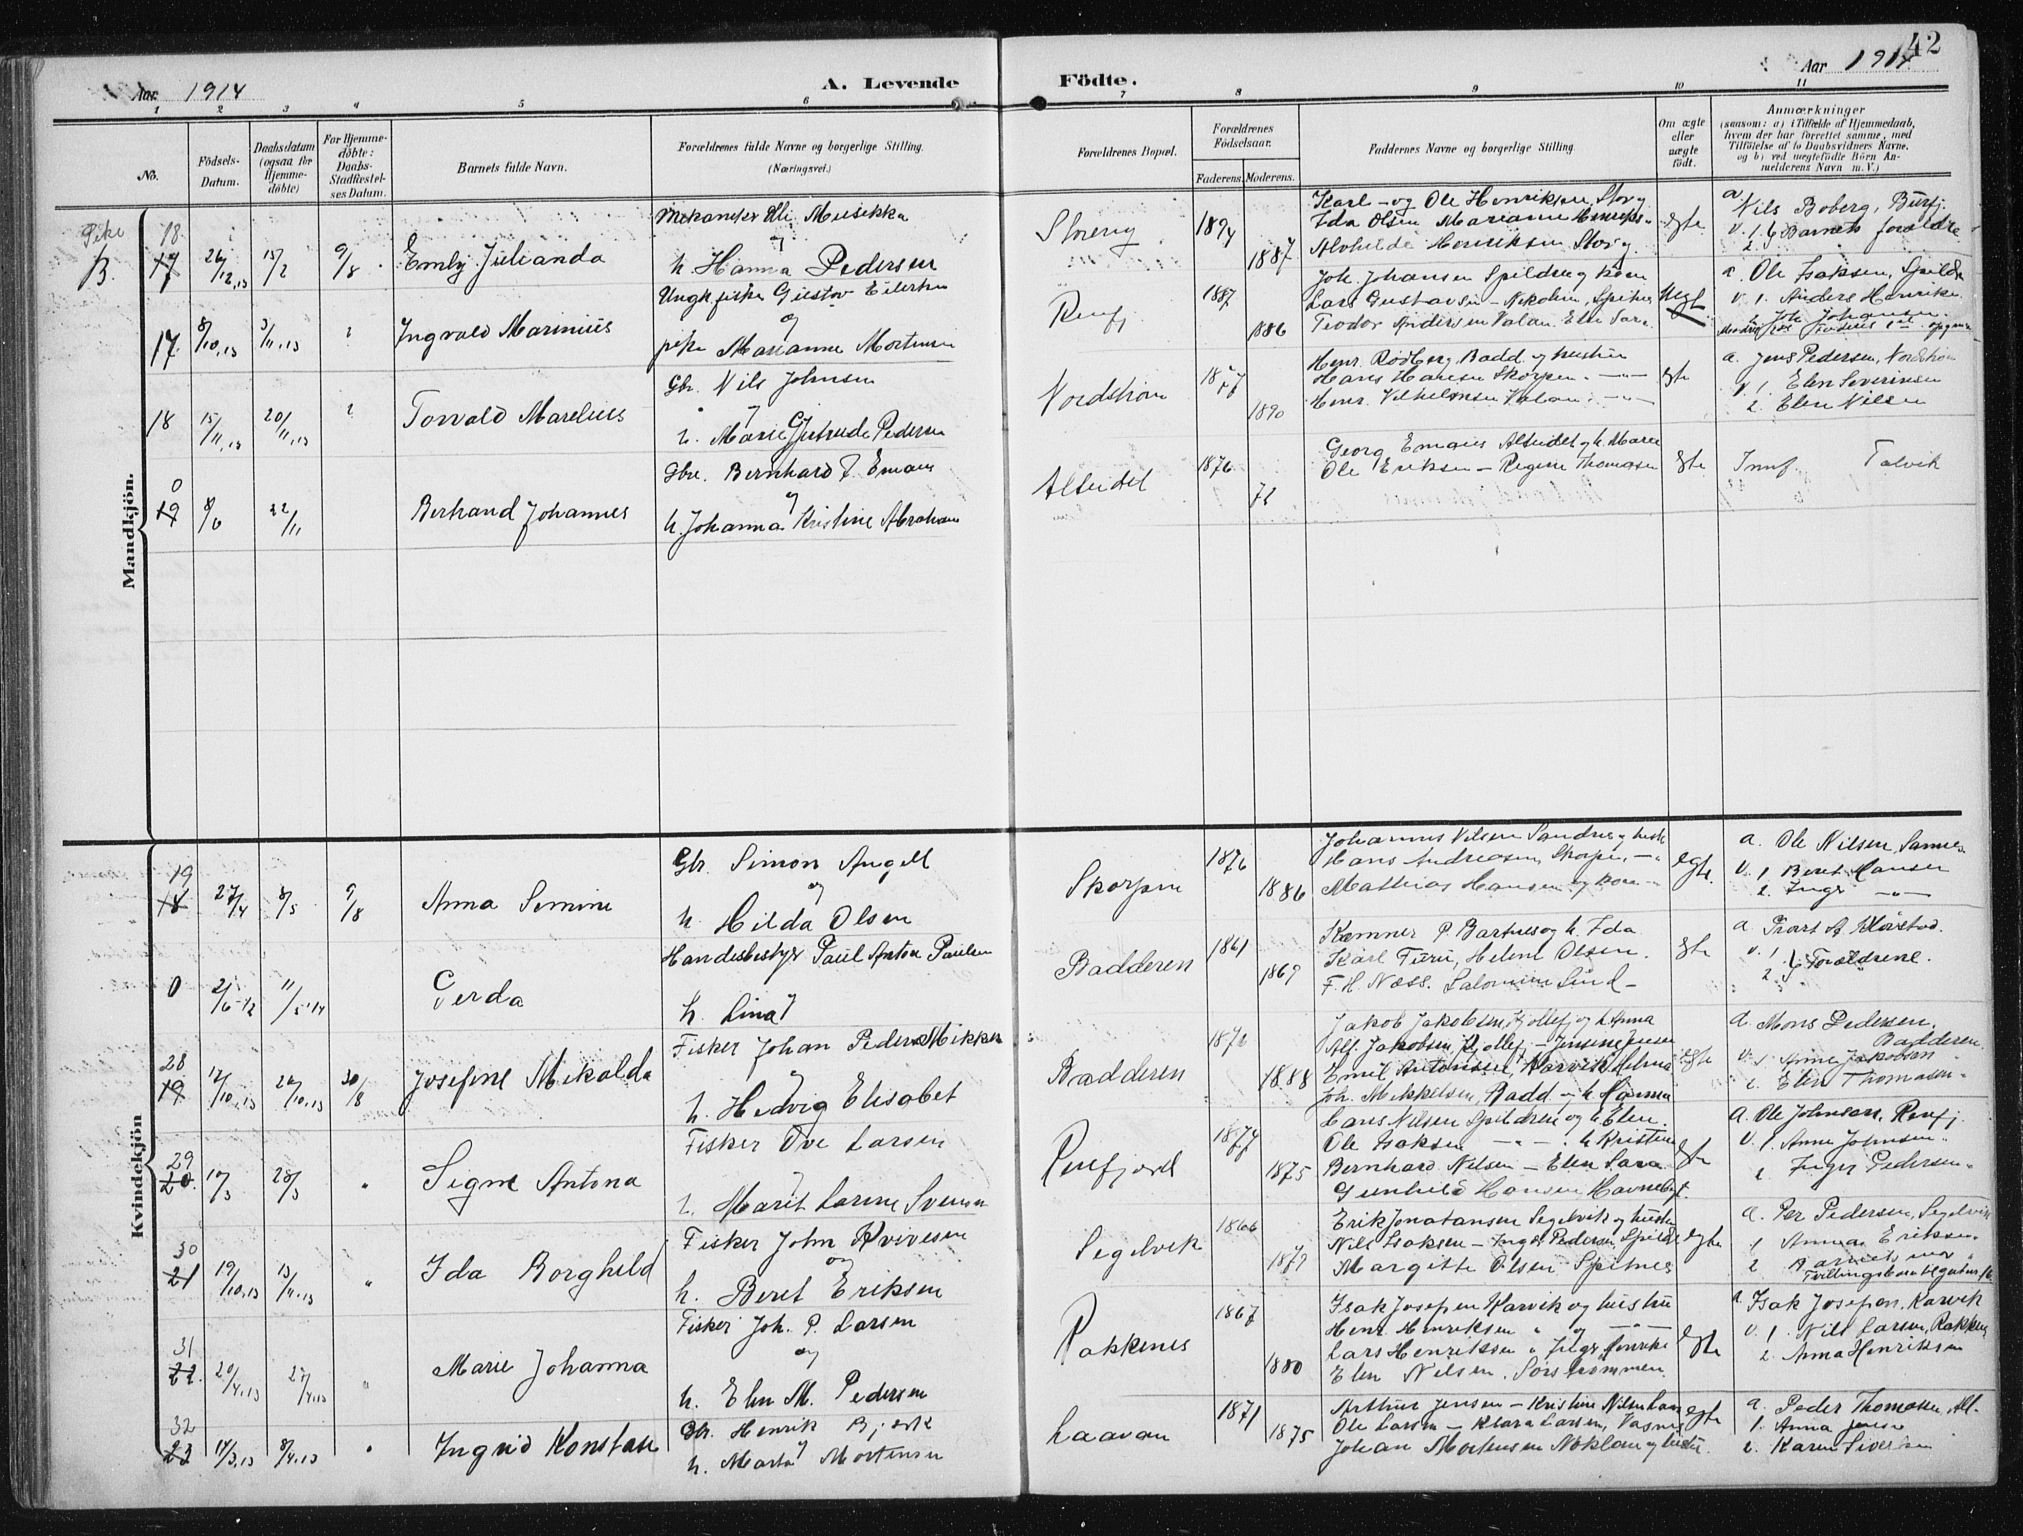 42
Aar 1914
A. Levende Födte.
Aar 1914
1 2 3 4 5 6 7 8 9 10 11
No.
Födsels-
Datum.
Daabsdatum
(ogsaa for
Hjemme-
döbte)
For Hjemme-
döbte:
Daabs-
Stadfæstel-
ses Datum.
Barnets fulde Navn.
Forældrenes fulde Navne og borgerlige Stilling.
(Næringsvei.)
Forældrenes Bopæl.
Forældrenes
Födselsaar.
Faderens. Moderens.
Faddernes Navne og borgerlige Stilling.
Om ægte
eller
uægte
födt.
Anmærkninger
(saasom: a) i Tilfælde af Hjemmedaab,
hvem der har forrettet samme, med
Tilföielse af to Daabsvidners Navne.
og b) ved uægtefödte Börn An-
melderens Navn m. V.)
Mandkjön.
Pike
B.
18
17 26/12,13 15/2 9/8 Emly Julianda
h Hanna Pedersen
1887
egte
a Nils Boberg, Burfj.
v. 1 Barnets forældre
2
17 8/10,13 3/11,13 Ingvald Marinius
Ungk. fisker Gustav Eilertsen
og
pike Marianne Mortensen
Renfj.
1887
1886
Joh. Johansen Spildren og kone
Lars Gustavsen
Teodor Andersen Valan. Elen Sara
uegte
a. Ole Isaksen, Spildr
v. 1. Anders Henriks
2 Joh Johansen
18 15/11,13 20/11,13 Torvald Marelius
Gbr. Nils Johnsen
og
h. Marie Gjertrude Pedersen
Nordstrøm
1890
Henr. Rödberg Badd. og hustru
Hans Hansen Skorpen. — " —
Henr. Vilhelmsen Valan. — " —
egte
a. Jens Pedersen, Nordstrøm
v 1. Elen Severinsen
2. Elen Nilsen
0
19 8/6 22/11 Bertrand Johannes
Gbr. Bernhard F. Emaus
og
h. Johanna Kristine Abraham
Alteidet
1876
72
Georg Emaus Alteidet og h. Maren
Ole Eriksen — Regine Thomasen
egte
Innf. Talvik
Kvindekjön
19
18 27/4 8/5 9/8 Anna Simine
Gbr. Simon Angell
og
h Hilda Olsen
Skorpen
1876
1886
Johannes Nilsen Sandnes og hustr
Hans Andreasen, Skorpen, — "
Mathias Hansen og kone — "
egte.
a. Ole Nilsen, Sannes
v. 1 Beret Hansen
2. Inger — " —
0 21/6-12 11/5-14 Gerda
Handelsbestyr Paul Anton Paulsen
og
h. Lina
Badderen
1861
1869
Kæmner P. Bartnes og h. Ida
Karl Turi, Helene Olsen.
F. H. Næss. Salomine Lind —
egte
a. Prart A. Hørstad.
v. 1 Forældrene.
2
28
19 12/10,13 26/10,13 30/8 Josefine Mikalda
Fisker Johan Peder Mikkel
og
h. Hedvig Elisabet
Badderen
1872
1888
Jakob Jakobsen, Kjollefj. og h. Anna
Alf. Jakobsen Kjollefj — Jensine Jensen
Emil Antonsen, Karvik, Helma
Joh. Mikkelsen, Badd — h. Hanna
egte
a. Mons Pedersen,
Badderen
v. 1 Anne Jakobsen
2. Elen Thomasen —
29
20 10/3 28/3 " Signe Antona
Fisker Ove Larsen
og
h. Marit Larine Svensen
Renfjord
1874
1875
Lars Nilsen Spildren og h. Elen.
Ole Isaksen — " — h. Kristine
Bernhard Nilsen — Elen Sara
Gunhild Hansen Havnebgt.
egte
a. Ole Johnsen, Renfj
v. 1. Anne Johnsen "
2 Inger Pedersen "
30
21 19/10,13 13/11,13 " Ida Borghild
Fisker John Kvivesen
og
h. Beret Eriksen
Segelvik
1866
1872
Erik Jonatansen Segelvik og hustru
Nils Isaksen — Inger Pedersen Spildr
Margitte Olsen Spitnes
egte
a. Per Pedersen, Segelvik
1 Anna Eriksen
2 Barnets mor "
31
22. 20/4,13 27/4,13 " Marie Johanna
Fisker Joh. P. Larsen
og
h. Elen M. Pedersen
Rakkenes
1867
1880
Isak Josefsen Karvik og hustru
Henr. Henriksen " og — " —
Lars Henriksen " Inger Henriks
Elen Nilsen. Sørstrømmen.
egte
a. Isak Josefsen, Karvik
v. 1. Nils Larsen, Rakkenes
2. Anna Henriksen
32
23 14/3,13 8/4,13 " Ingrid Konstase
Gbr. Henrik Bjerk
og
h. Marta Mortensen
Laavan
1871
1875
Arthur Jensen — Kristine Nilsen
Ole Larsen — Klara Larsen,
Johan Mortensen Noklan og hustr.
egte
a. Peder Thomassen, Alt.
1. Anna Jensen
2. Karen Siversen